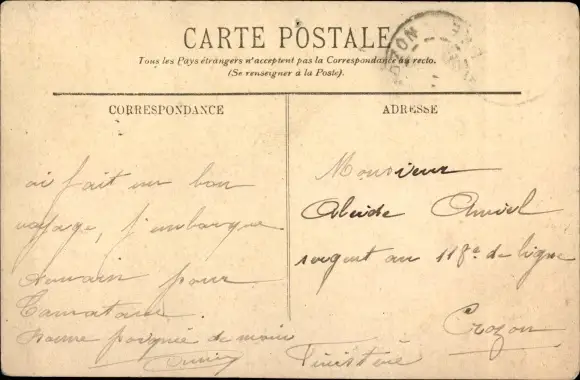 CARTE POSTALE
Tous les Pays étrangers n'acceptent pas la Correspondance au recto.
(Se renseigner à la Poste).
CORRESPONDANCE
ai fait un bon
voyage, j'embarque
demain pour
Bonne poignée de main
ADRESSE
Monsieur
Alcide
sergent au 118e de ligne
Crozon
Finistère
CROZON